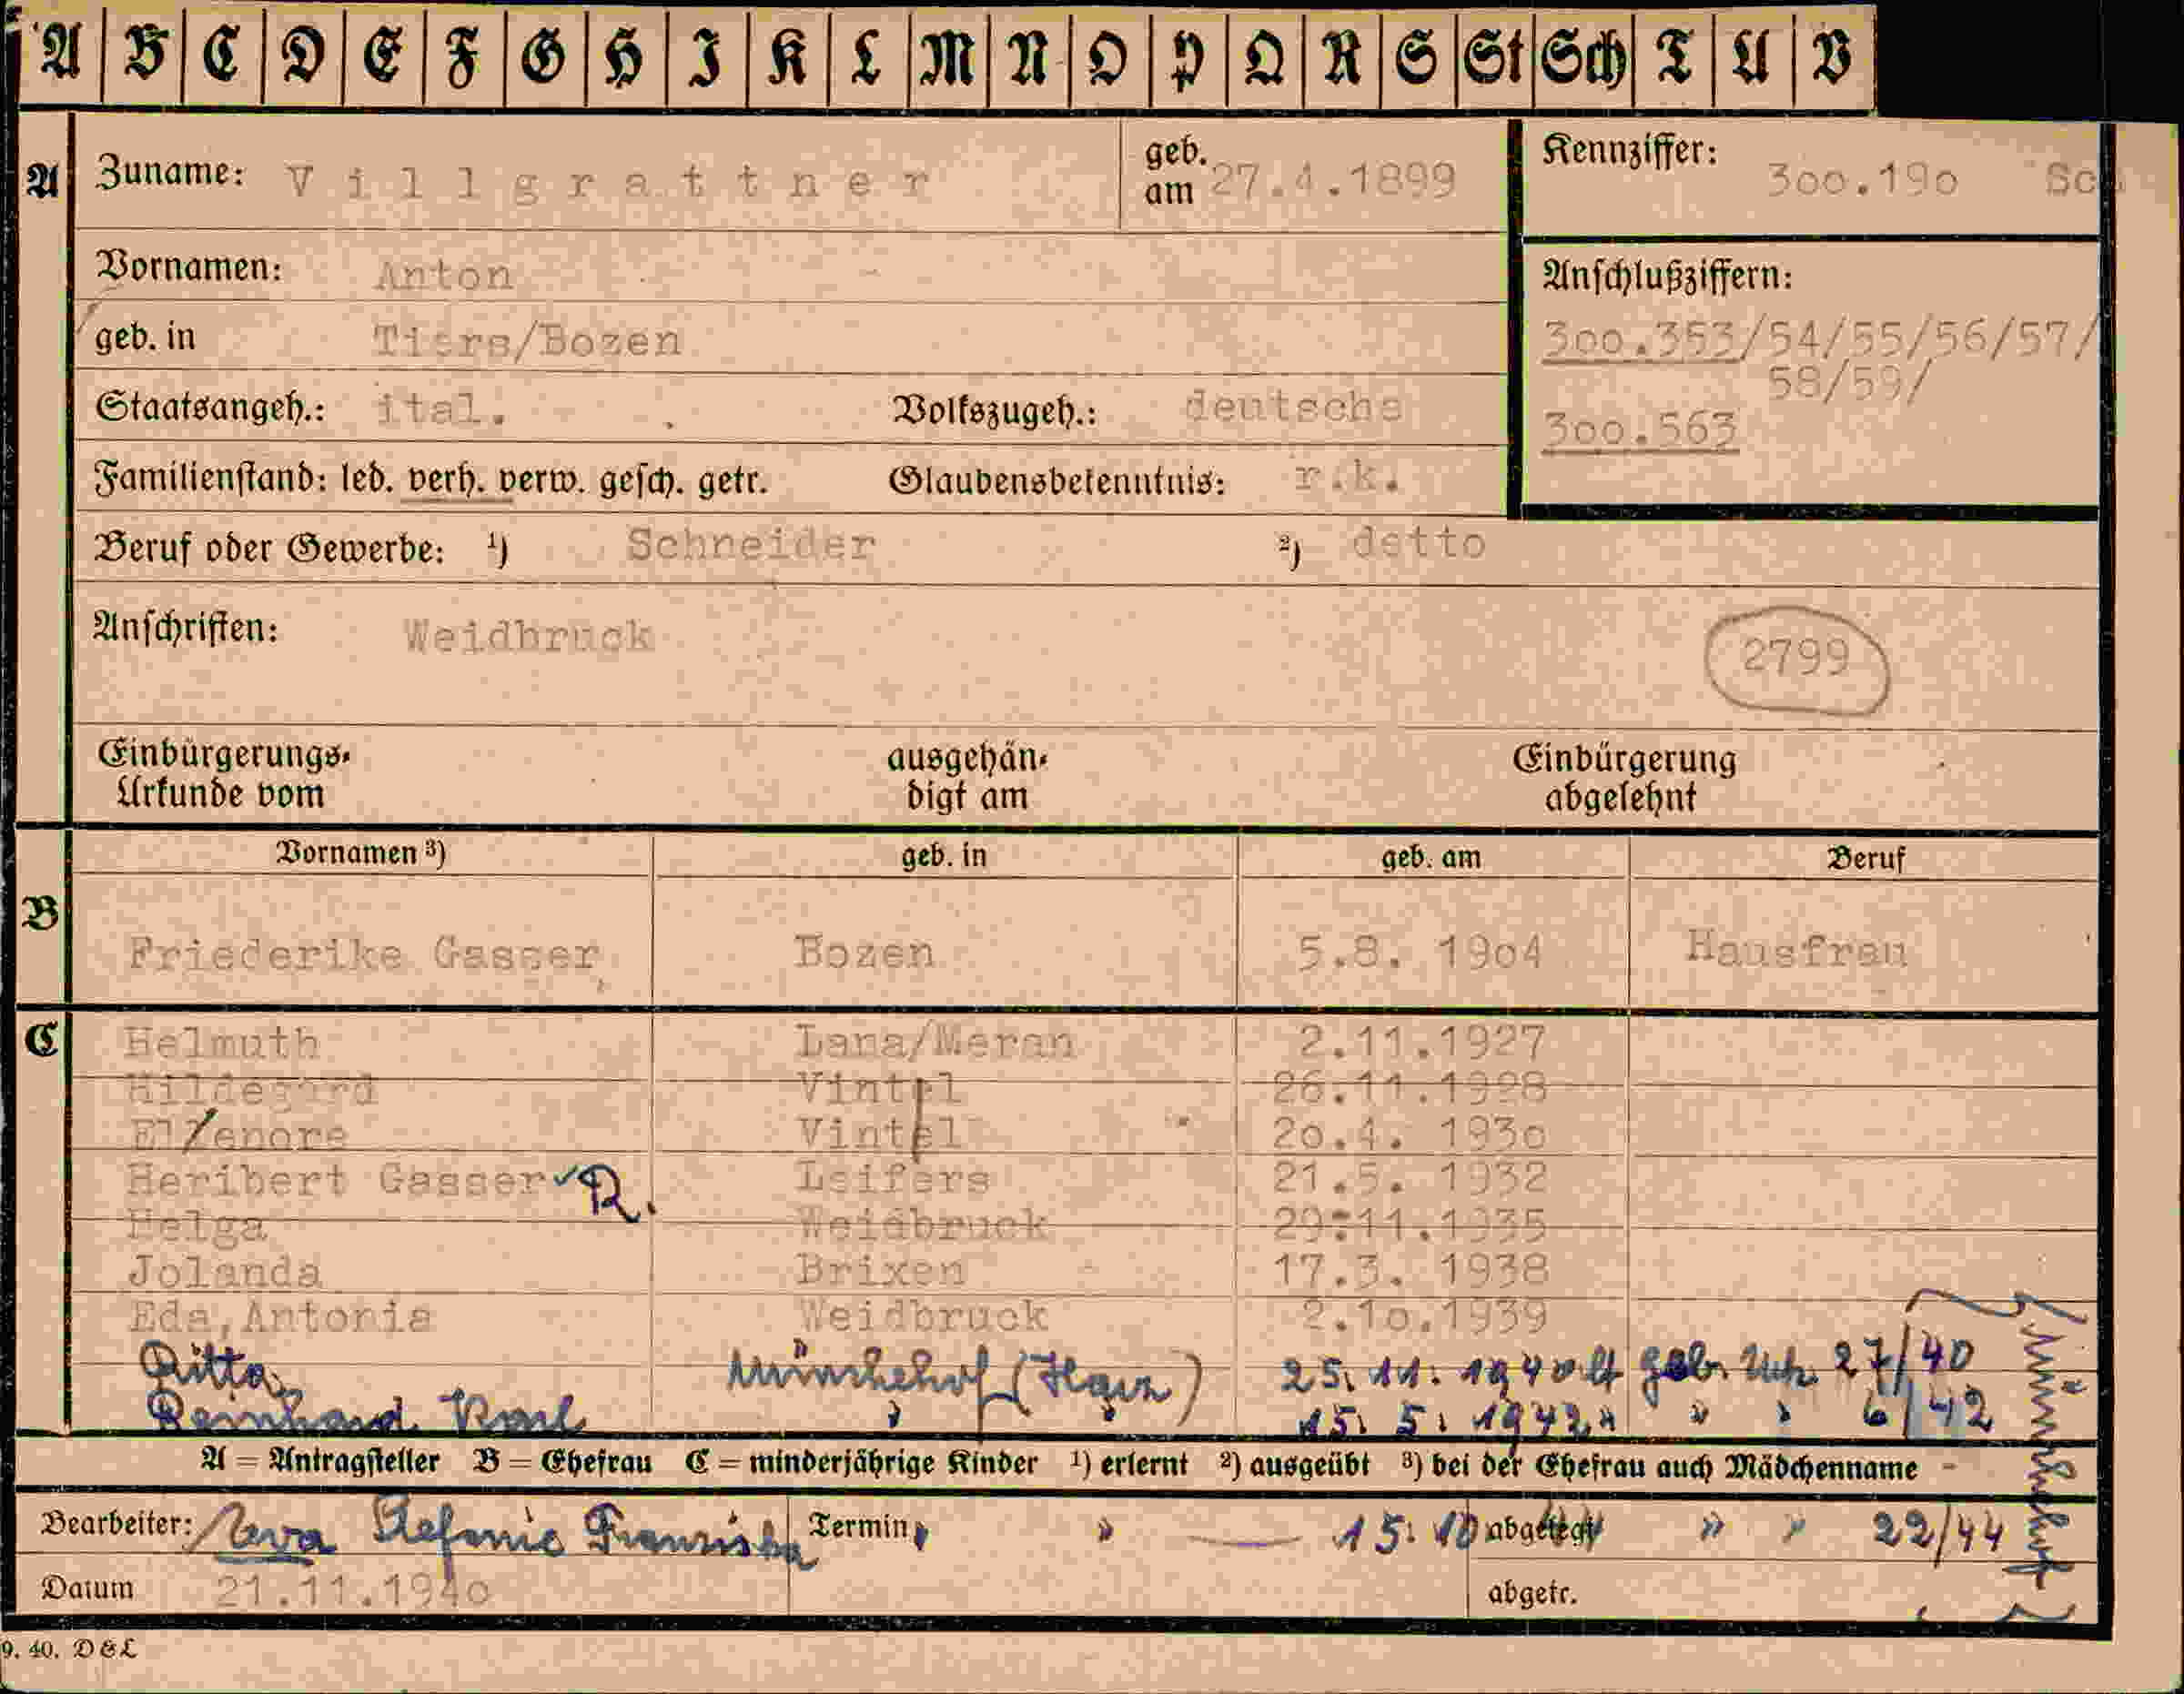 A B C D E F G H I K L M N O P Q R S St Sch T U V
A Zuname: Villgrattner geb. am 27.4.1899 Kennziffer: 3oo.19o Sc
Vornamen: Anton Anschlußziffern:
geb. in Tiers/Bozen 3oo.353/54/55/56/57/
58/59/
Staatsangeh.: ital. Volkszugeh.: deutsche 3oo.563
Familienstand: led. verh. verw. gesch. getr. Glaubensbekenntnis: r.k.
Beruf oder Gewerbe: ¹) Schneider ²) detto
Anschriften: Weidbruck 2799
Einbürgerungs-Urkunde vom ausgehän-digt am Einbürgerung abgelehnt
Vornamen ³) geb. in geb. am Beruf
B Friederike Gasser Bozen 5.8. 19o4 Hausfrau
C Helmuth Lana/Meran 2.11.1927
Hildegard Vintl 26.11.1928
Elenore Vintl 2o.4. 193o
Heribert Gasser R. Leifers 21.5. 1932
Helga Weidbruck 29.11.1935
Jolanda Brixen 17.3. 1938
Eda,Antonia Weidbruck 2.1o.1939
Ritta Münchehof (Harz) 25.11.1940 lt geb. Urk. 27/40
Reinhard Karl " " 15.5.1942 " " " 6/42
A = Antragsteller B = Ehefrau C = minderjährige Kinder ¹) erlernt ²) ausgeübt ³) bei der Ehefrau auch Mädchenname
Bearbeiter: Stefanie Franziska Termin " 15.10 abgelegt " " 22/44
Datum 21.11.194o abgetr.
9. 40. D&L